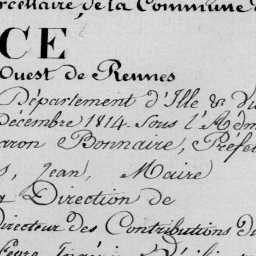 rcellaire, de la Commune
CE
Ouest de Rennes
Département d'Ille &
Décembre 1814. Sous l'Adm
aron Bonnaire, Préfe
s, Jean, Maire
Direction de
Directeur des Contributions